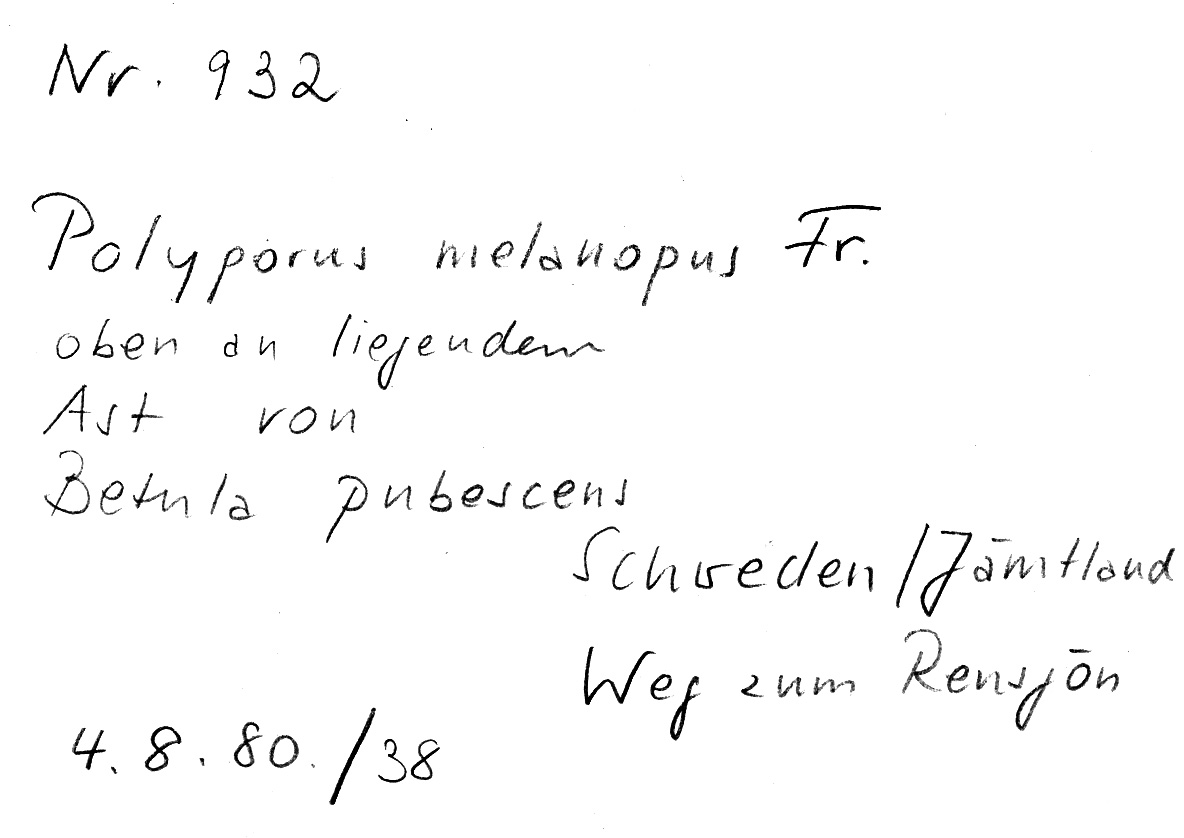 Nr. 932
Polyporus melanopus Fr.
oben an liegendem
Ast von
Betula pubescens
Schweden/Jämtland
Weg zum Rensjön
4.8.80./38